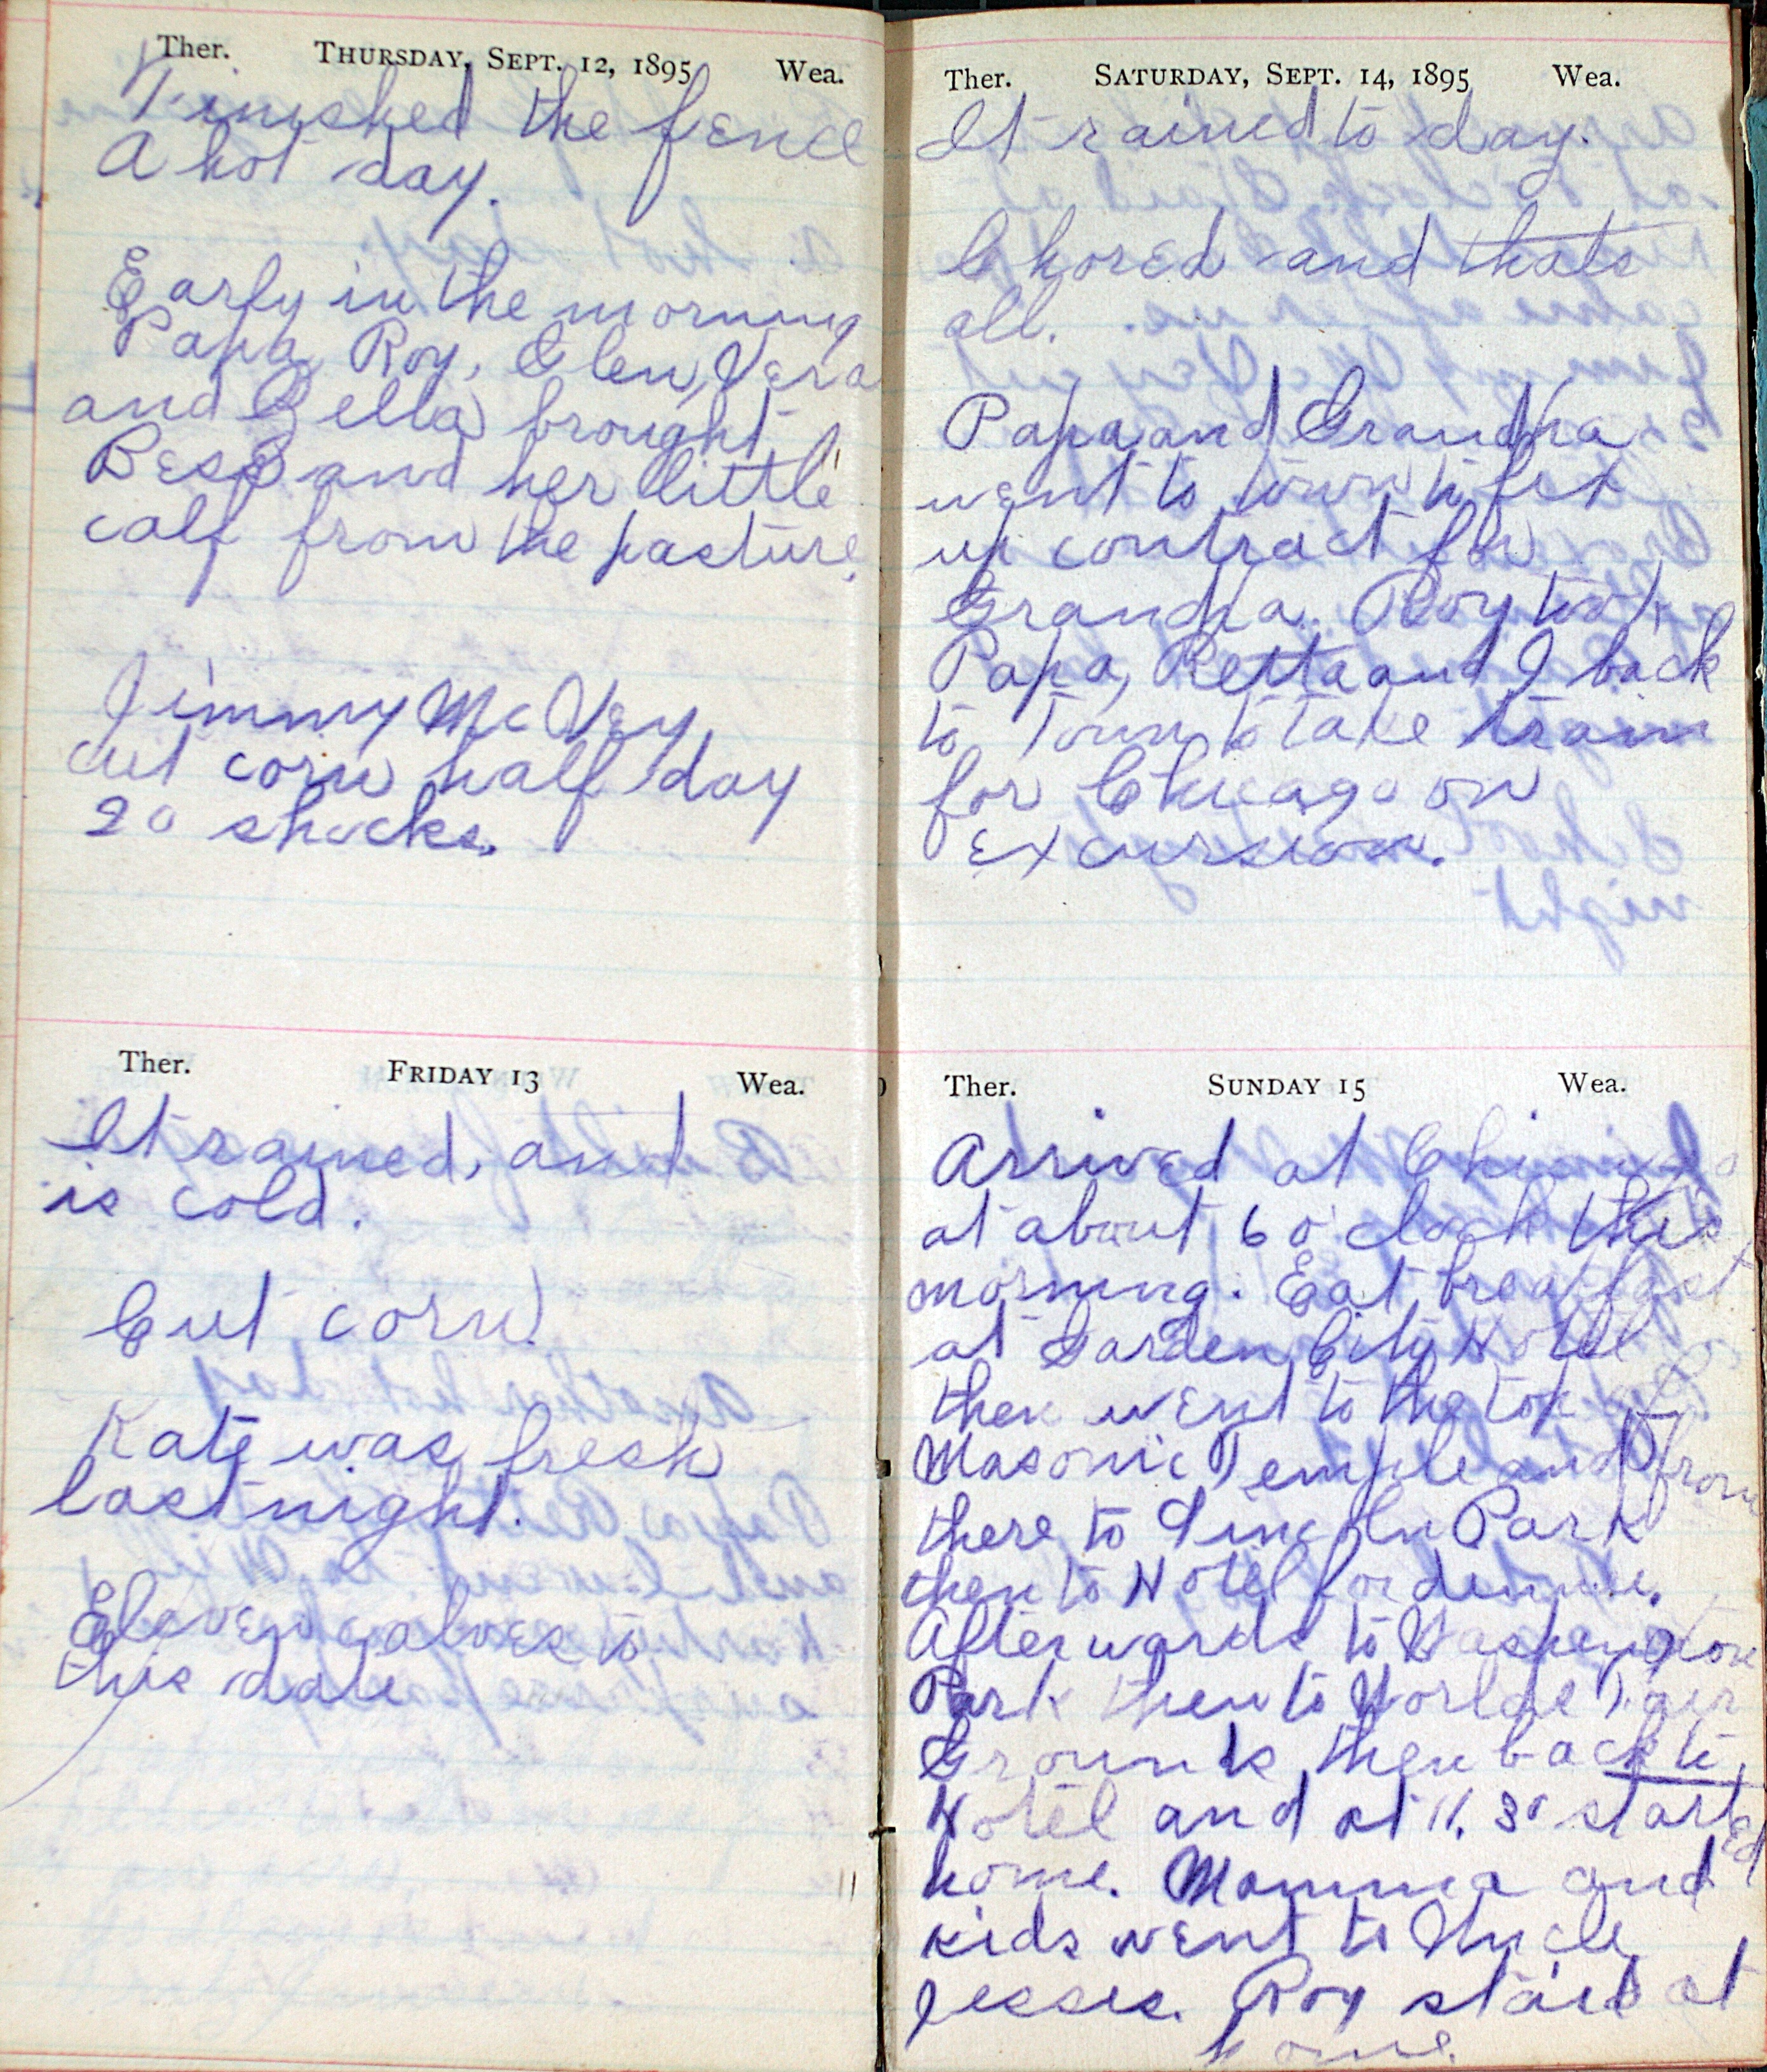 Ther. THURSDAY, SEPT. 12, 1895 Wea.
Finished the fence
A hot day.
Early in the morning
Papa, Roy, Glen, Vera
and Zella brought
Bess and her little
calf from the pasture.
Jimmy McVey
cut corn half day
20 shocks.
Ther. FRIDAY 13 Wea.
It rained, and
is cold.
Cut corn.
Kate was fresh
last night.
Eleven calves to
this date
Ther. SATURDAY, SEPT. 14, 1895 Wea.
It rained to day.
Chored and thats
all.
Papa and Grandpa
went to town to fix
up contract for
Grandpa. Roy took
Papa, Retta and I back
to Town to take train
for Chicago on
excursion.
Ther. SUNDAY 15 Wea.
Arrived at Chicago
at about 6 o'clock this
morning. Eat breakfast
at Garden City Hotel
then went to the top of
Masonic Temple and from
there to Lincoln Park
then to Hotel for dinner.
Afterwards to Washington
Park then to Worlds Fair
Grounds then back to
Hotel and at 11.30 started
home. Mamma and
kids went to Uncle
Jesses. Roy staid at
home.